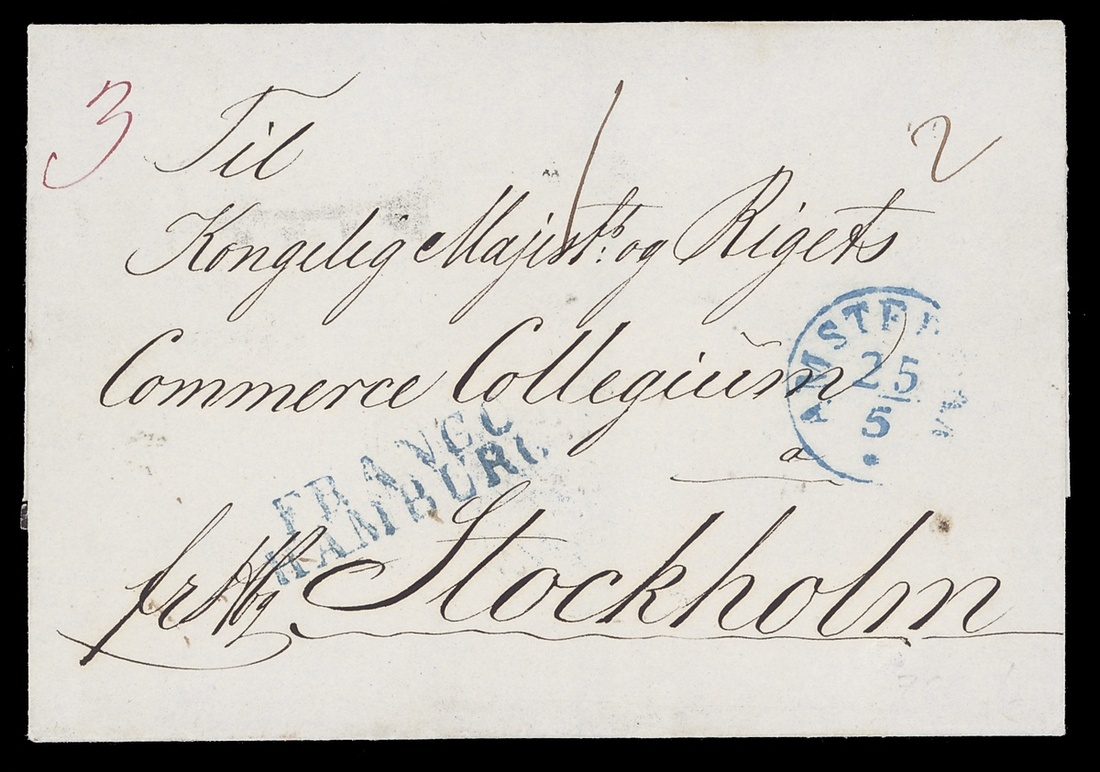 3
Til
2
Kongelig Majts: og Rigets
Commerce Collegiüm
AMSTER
25
5
a
FRANCO
HAMBURG
fr Hbg Stockholm